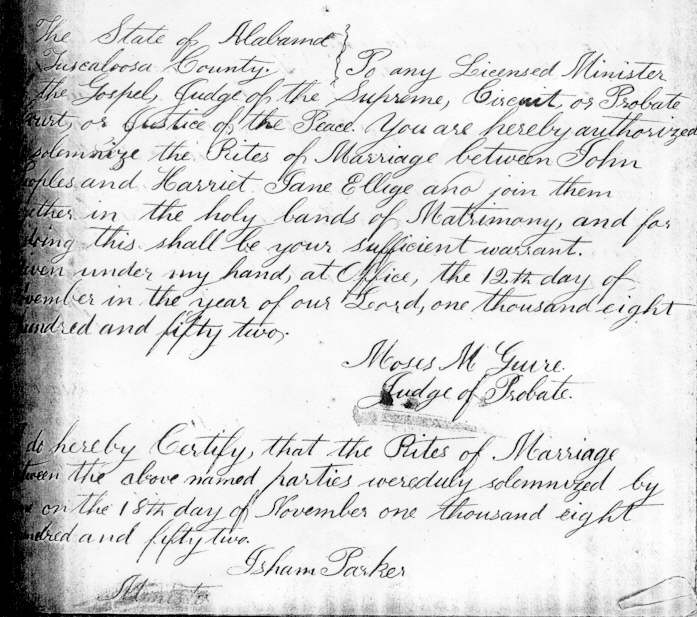 The State of Alabama }
Tuscaloosa County. } To any Licensed Minister
the Gospel, Judge of the Supreme, Circuit, or Probate
ourt, or Justice of the Peace. You are hereby authorized
solemnize the Rites of Marriage between John
eoples and Harriet Jane Ellige and join them
gether in the holy bands of Matrimony, and for
doing this shall be your sufficient warrant.
iven under my hand, at Office, the 12th day of
vember in the year of our Lord, one thousand eight
undred and fifty two.
Moses McGuire.
Judge of Probate.
do hereby Certify, that the Rites of Marriage
tween the above named parties were duly solemnized by
e on the 18th day of November one thousand eight
undred and fifty two.
Isham Parker
Minister